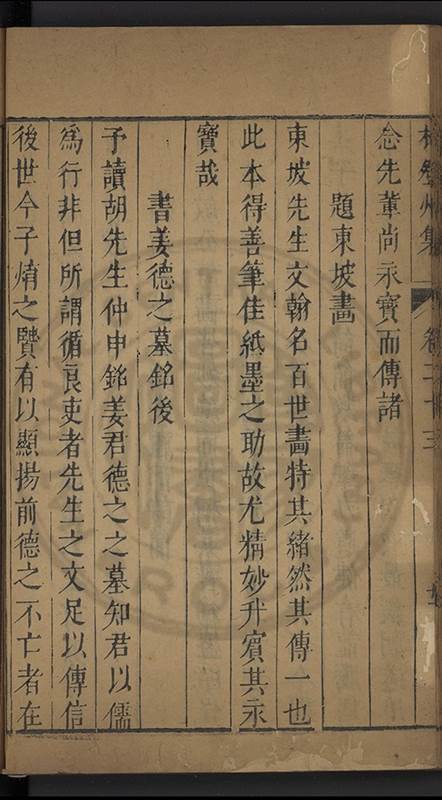 集 卷二十三
念先輩尚永寶而傳諸
題東坡畫
東坡先生文翰名百世畫特其緒然其傳一也
此本得善筆佳紙墨之助故尤精妙升賓其永
寶哉
書姜德之墓銘後
予讀胡先生仲申銘姜君德之之墓知君以儒
為行非但所謂循良吏者先生之文足以傳信
後世今子煥之賢有以顯揚前德之不亡者在